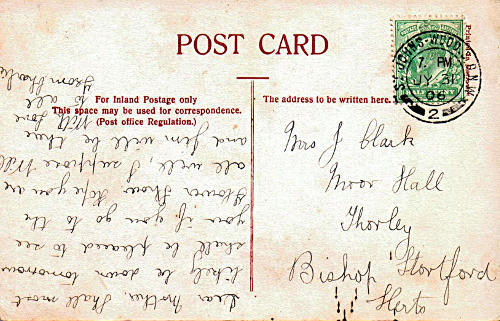 POST CARD
For Inland Postage only
This space may be used for correspondence.
(Post office Regulation.)
The address to be written here.
Dear Mother, Shall most
likely be down tomorrow
shall be pleased to see
you if you go to the
Flower Show. Hope you are
all well, I suppose Will
and Jim will be there
With love
to all
from Charlie
Mrs J Clark
Moor Hall
Thorley
Bishop Stortford
Herts
ST JOHNS-WOOD N.W.
7. PM
JY 31
06
2